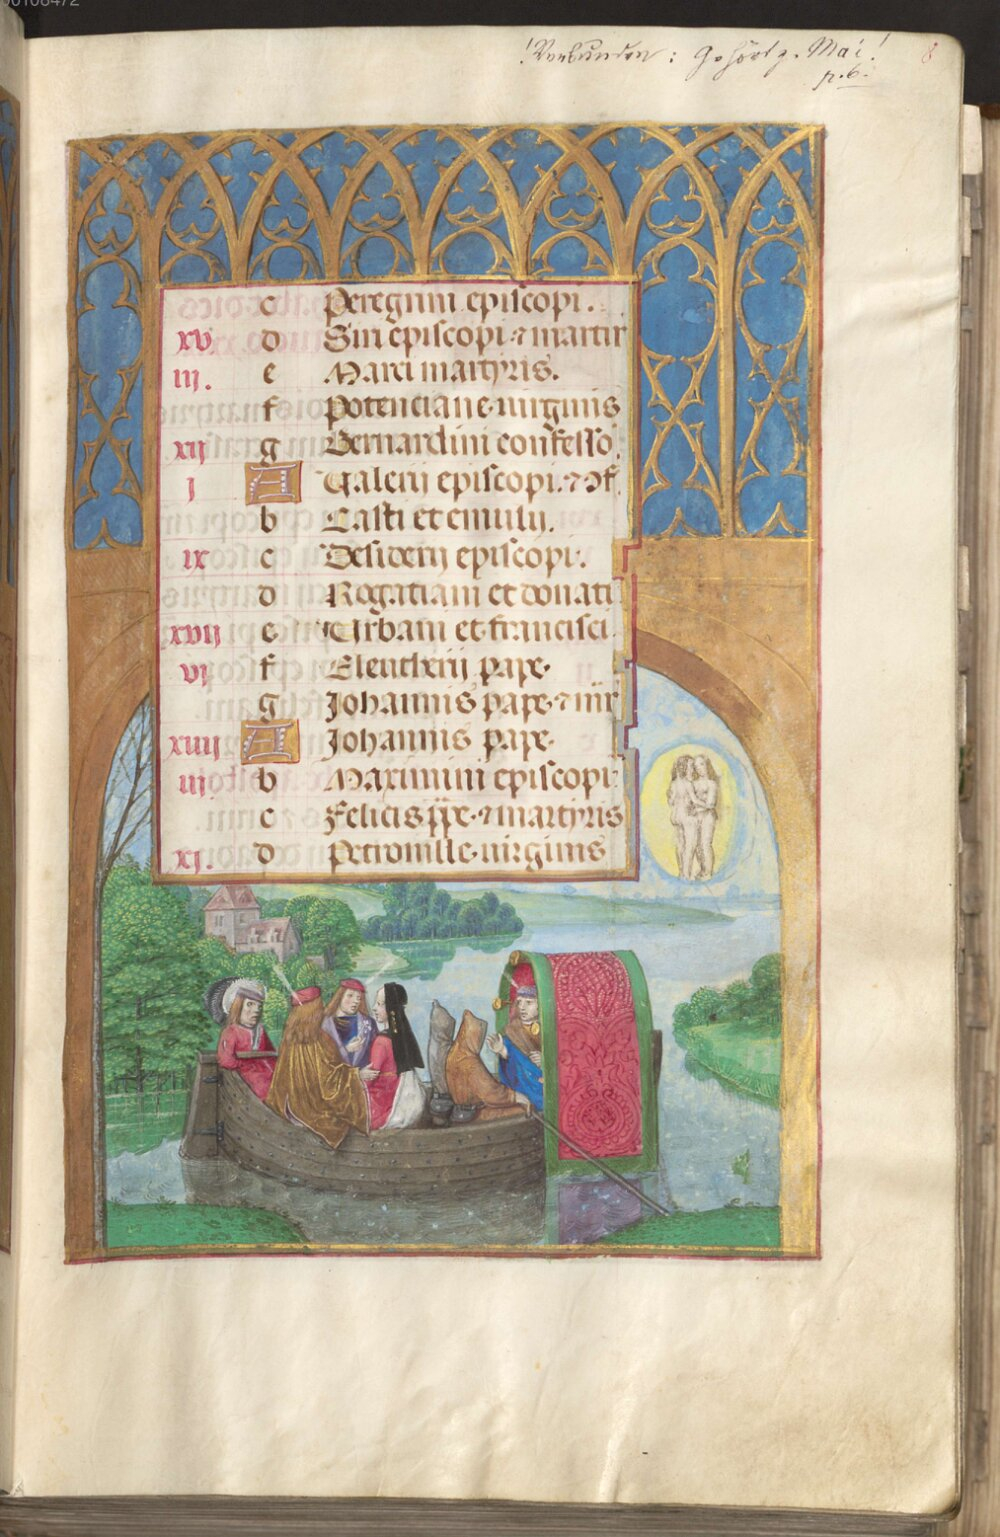 00108472
! Verbunden: Gehört z. Mai!
p. 6.
8
c Peregrini episcopi.
xv d Siri episcopi ⁊ martir
iii. e Marci martyris.
f Potenciane virginis
xij g Bernardini confesso
j A Valerij episcopi. ⁊ 9f
b Casti et emulij.
ix c Desiderij episcopi.
d Rogatiani et donati
xvij e Urbani et francisci
vj f Eleutherij pape.
g Johannis pape ⁊ mr
xiiij A Johannis pape.
iij b Maximini episcopi
c Felicis ppe. ⁊ martyris
xj. d Petronille virginis